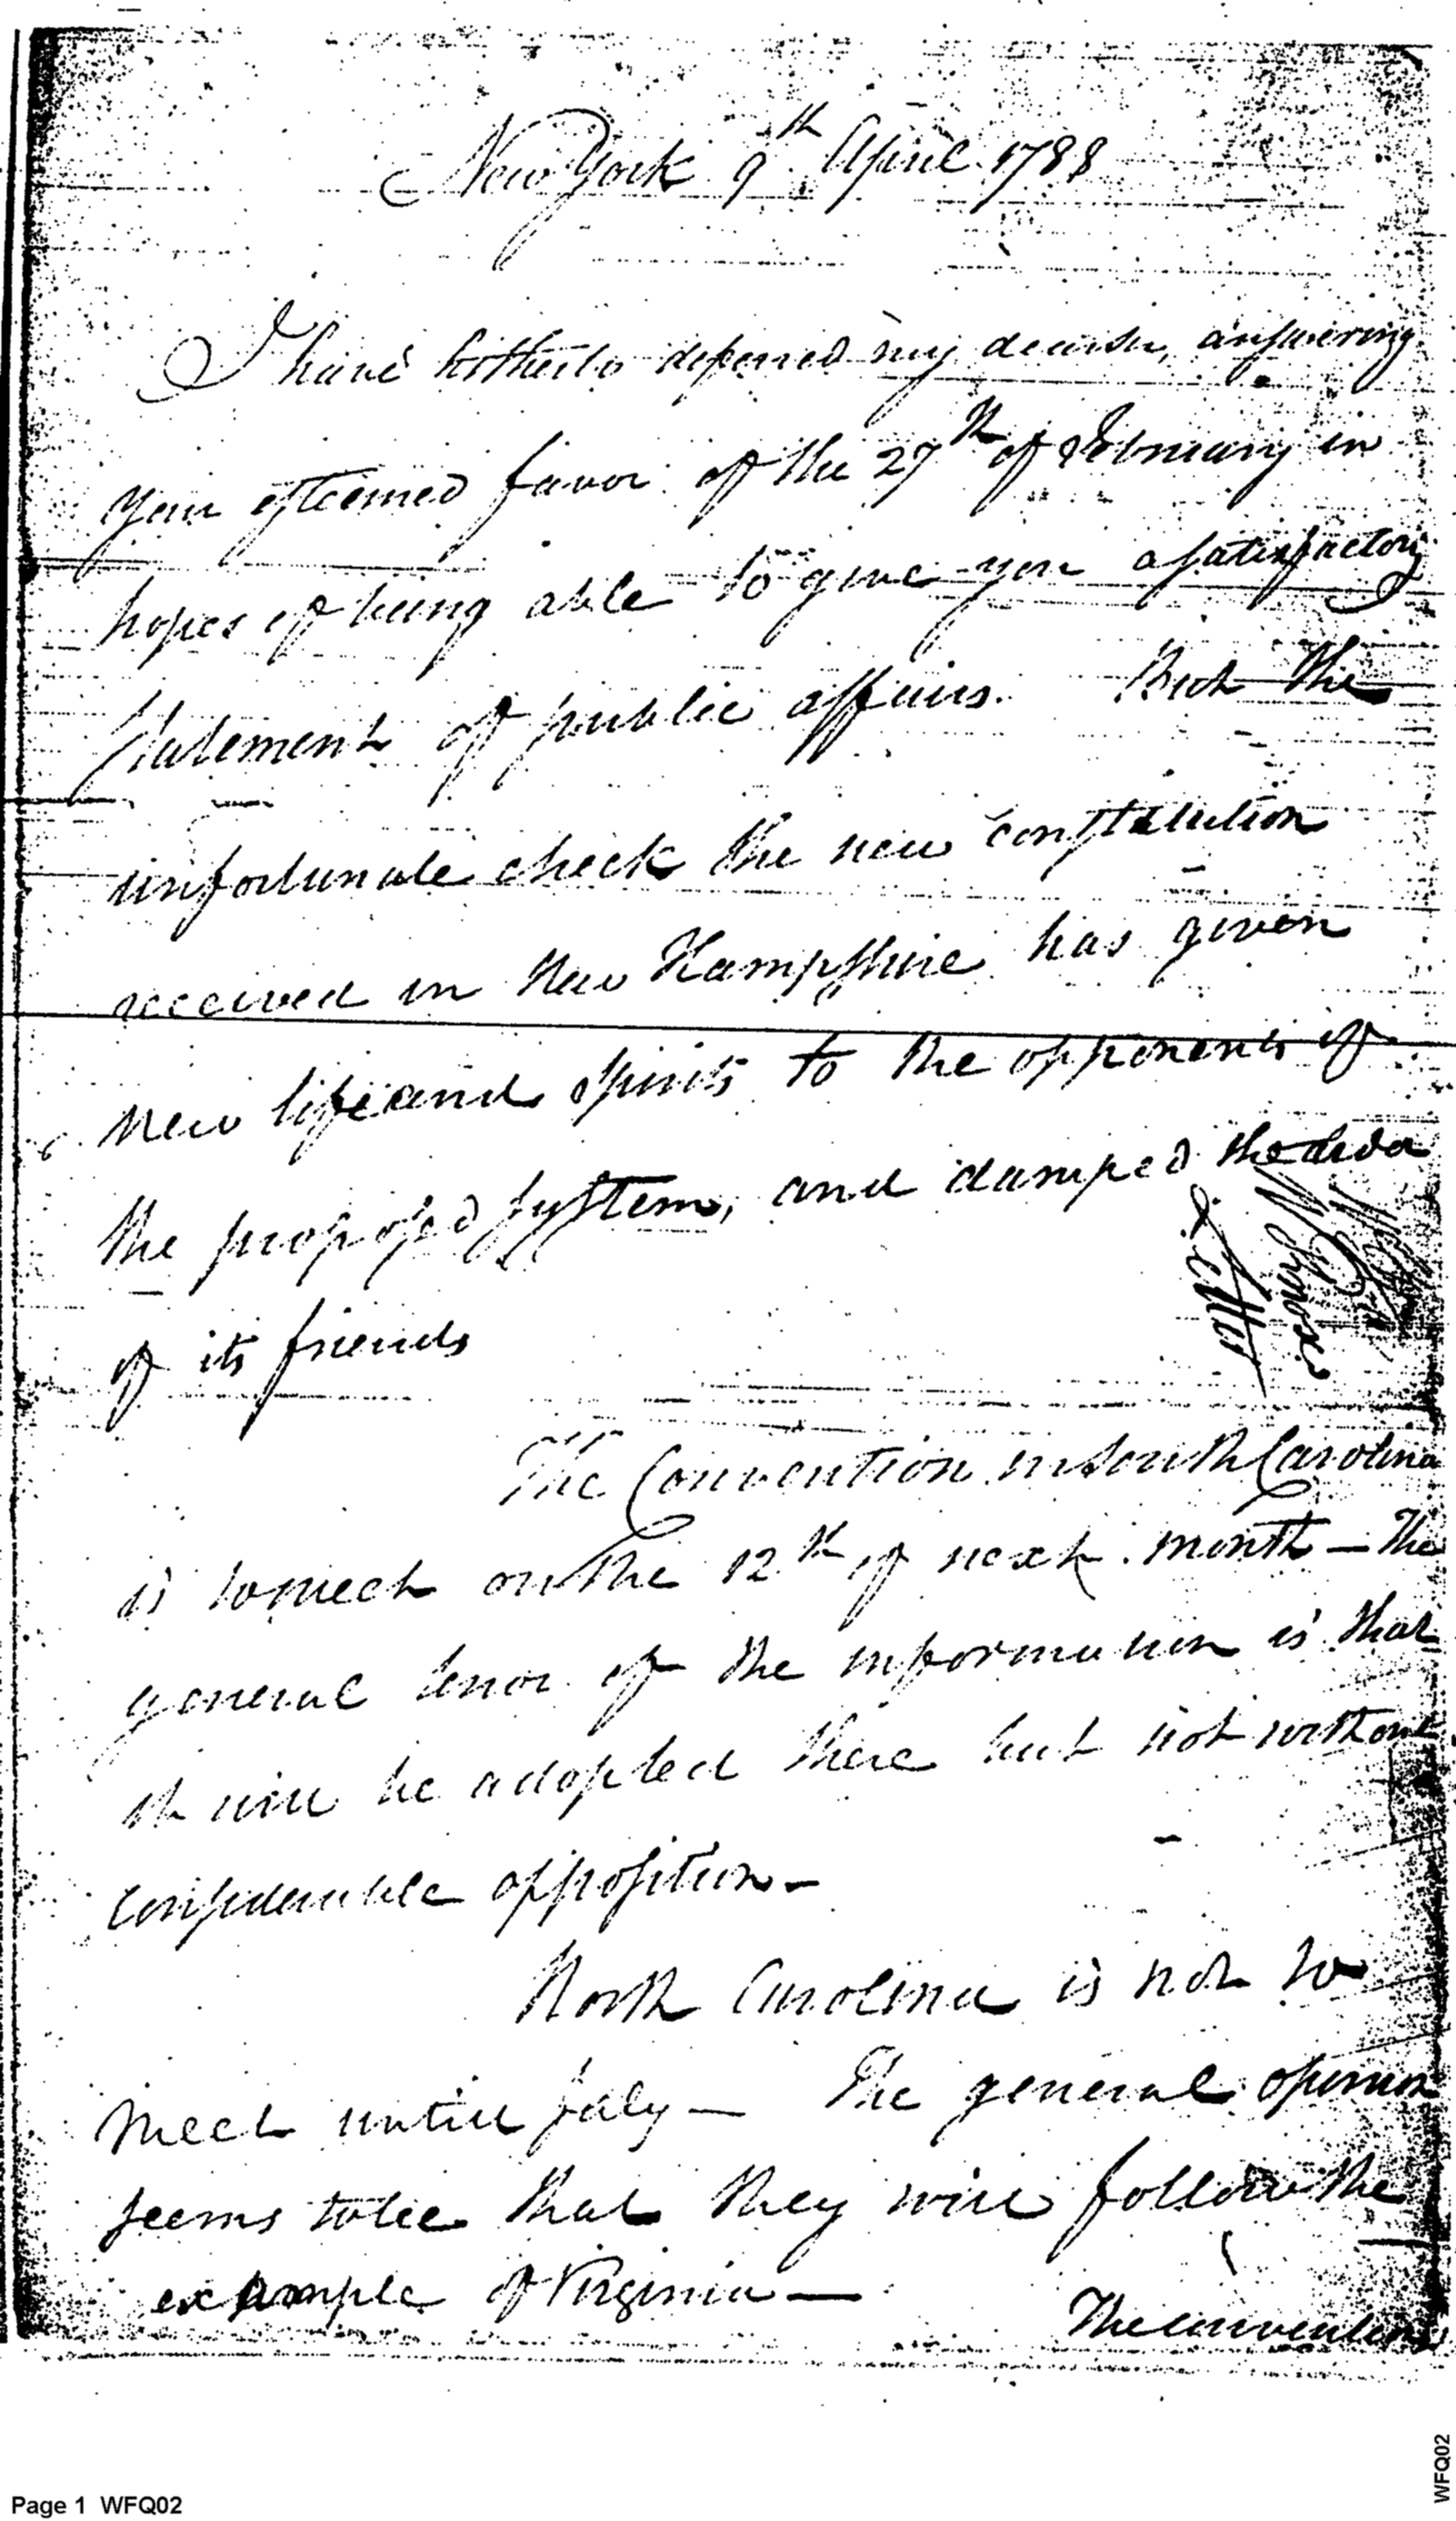 New York 9th April 1788
I have hitherto deferred my dear sir, answering
your esteemed favor of the 27th of February in
hopes of being able to give you a satisfactory
statement of public affairs. But the
unfortunate check the new constitution
received in New Hampshire has given
new life and spirits to the opponents of
the proposed system, and damped the ardor
of its friends
Letter
The Convention in South Carolina
is to meet on the 12th of next month — The
general tenor of the information is that
it will be adopted there but not without
considerable opposition —
North Carolina is not to
meet untill July — The general opinion
seems to be that they will follow the
example of Virginia —
The convention
Page 1 WFQ02
WFQ02